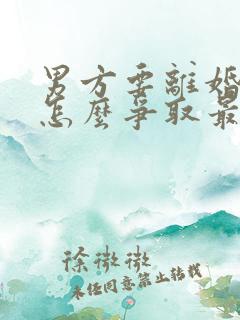 男方要離婚
怎麼爭取最
徐微微
未經同意禁止轉載